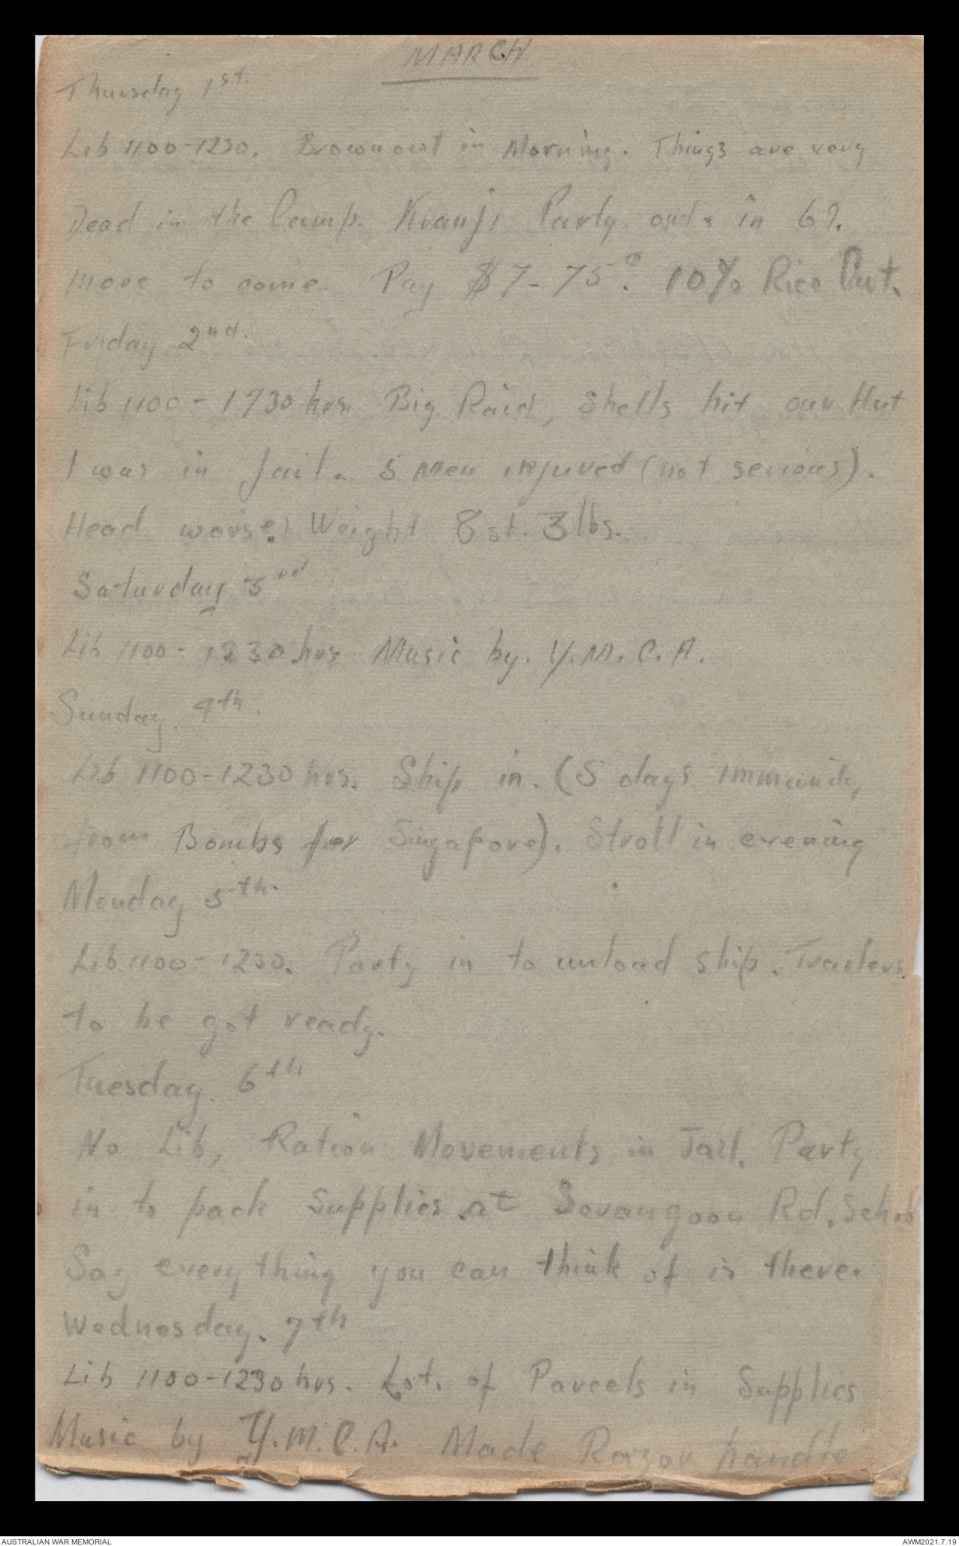 MARCH
Thursday 1st.
Lib 1100-1230. Brownout in Morning. Things are very
Dead in the Camp. Kranji Party out & in 6?.
more to come. Pay $7-75c. 10% Rice Cut.
Friday 2nd.
Lib 1100-1730 hrs. Big Raid, Shells hit our Hut
I was in Jail. 5 Men injured (not serious).
Head worse. Weight 8 st. 3 lbs.
Saturday 3rd
Lib 1100-1230 hrs Music by. Y.M.C.A.
Sunday 4th.
Lib 1100-1230 hrs. Ship in. (5 days immunity
from Bombs for Singapore). Stroll in evening
Monday 5th.
Lib 1100-1230. Party in to unload ship. Trailers
to be got ready.
Tuesday 6th
No Lib, Ration Movements in Jail. Party
in to pack Supplies at Serangoon Rd,
Say everything you can think of is there.
Wednesday. 7th
Lib 1100-1230 hrs. Lot. of Parcels in Supplies
Music by Y.M.C.A. Made Razor handle
AUSTRALIAN WAR MEMORIAL
AWM2021.7.19